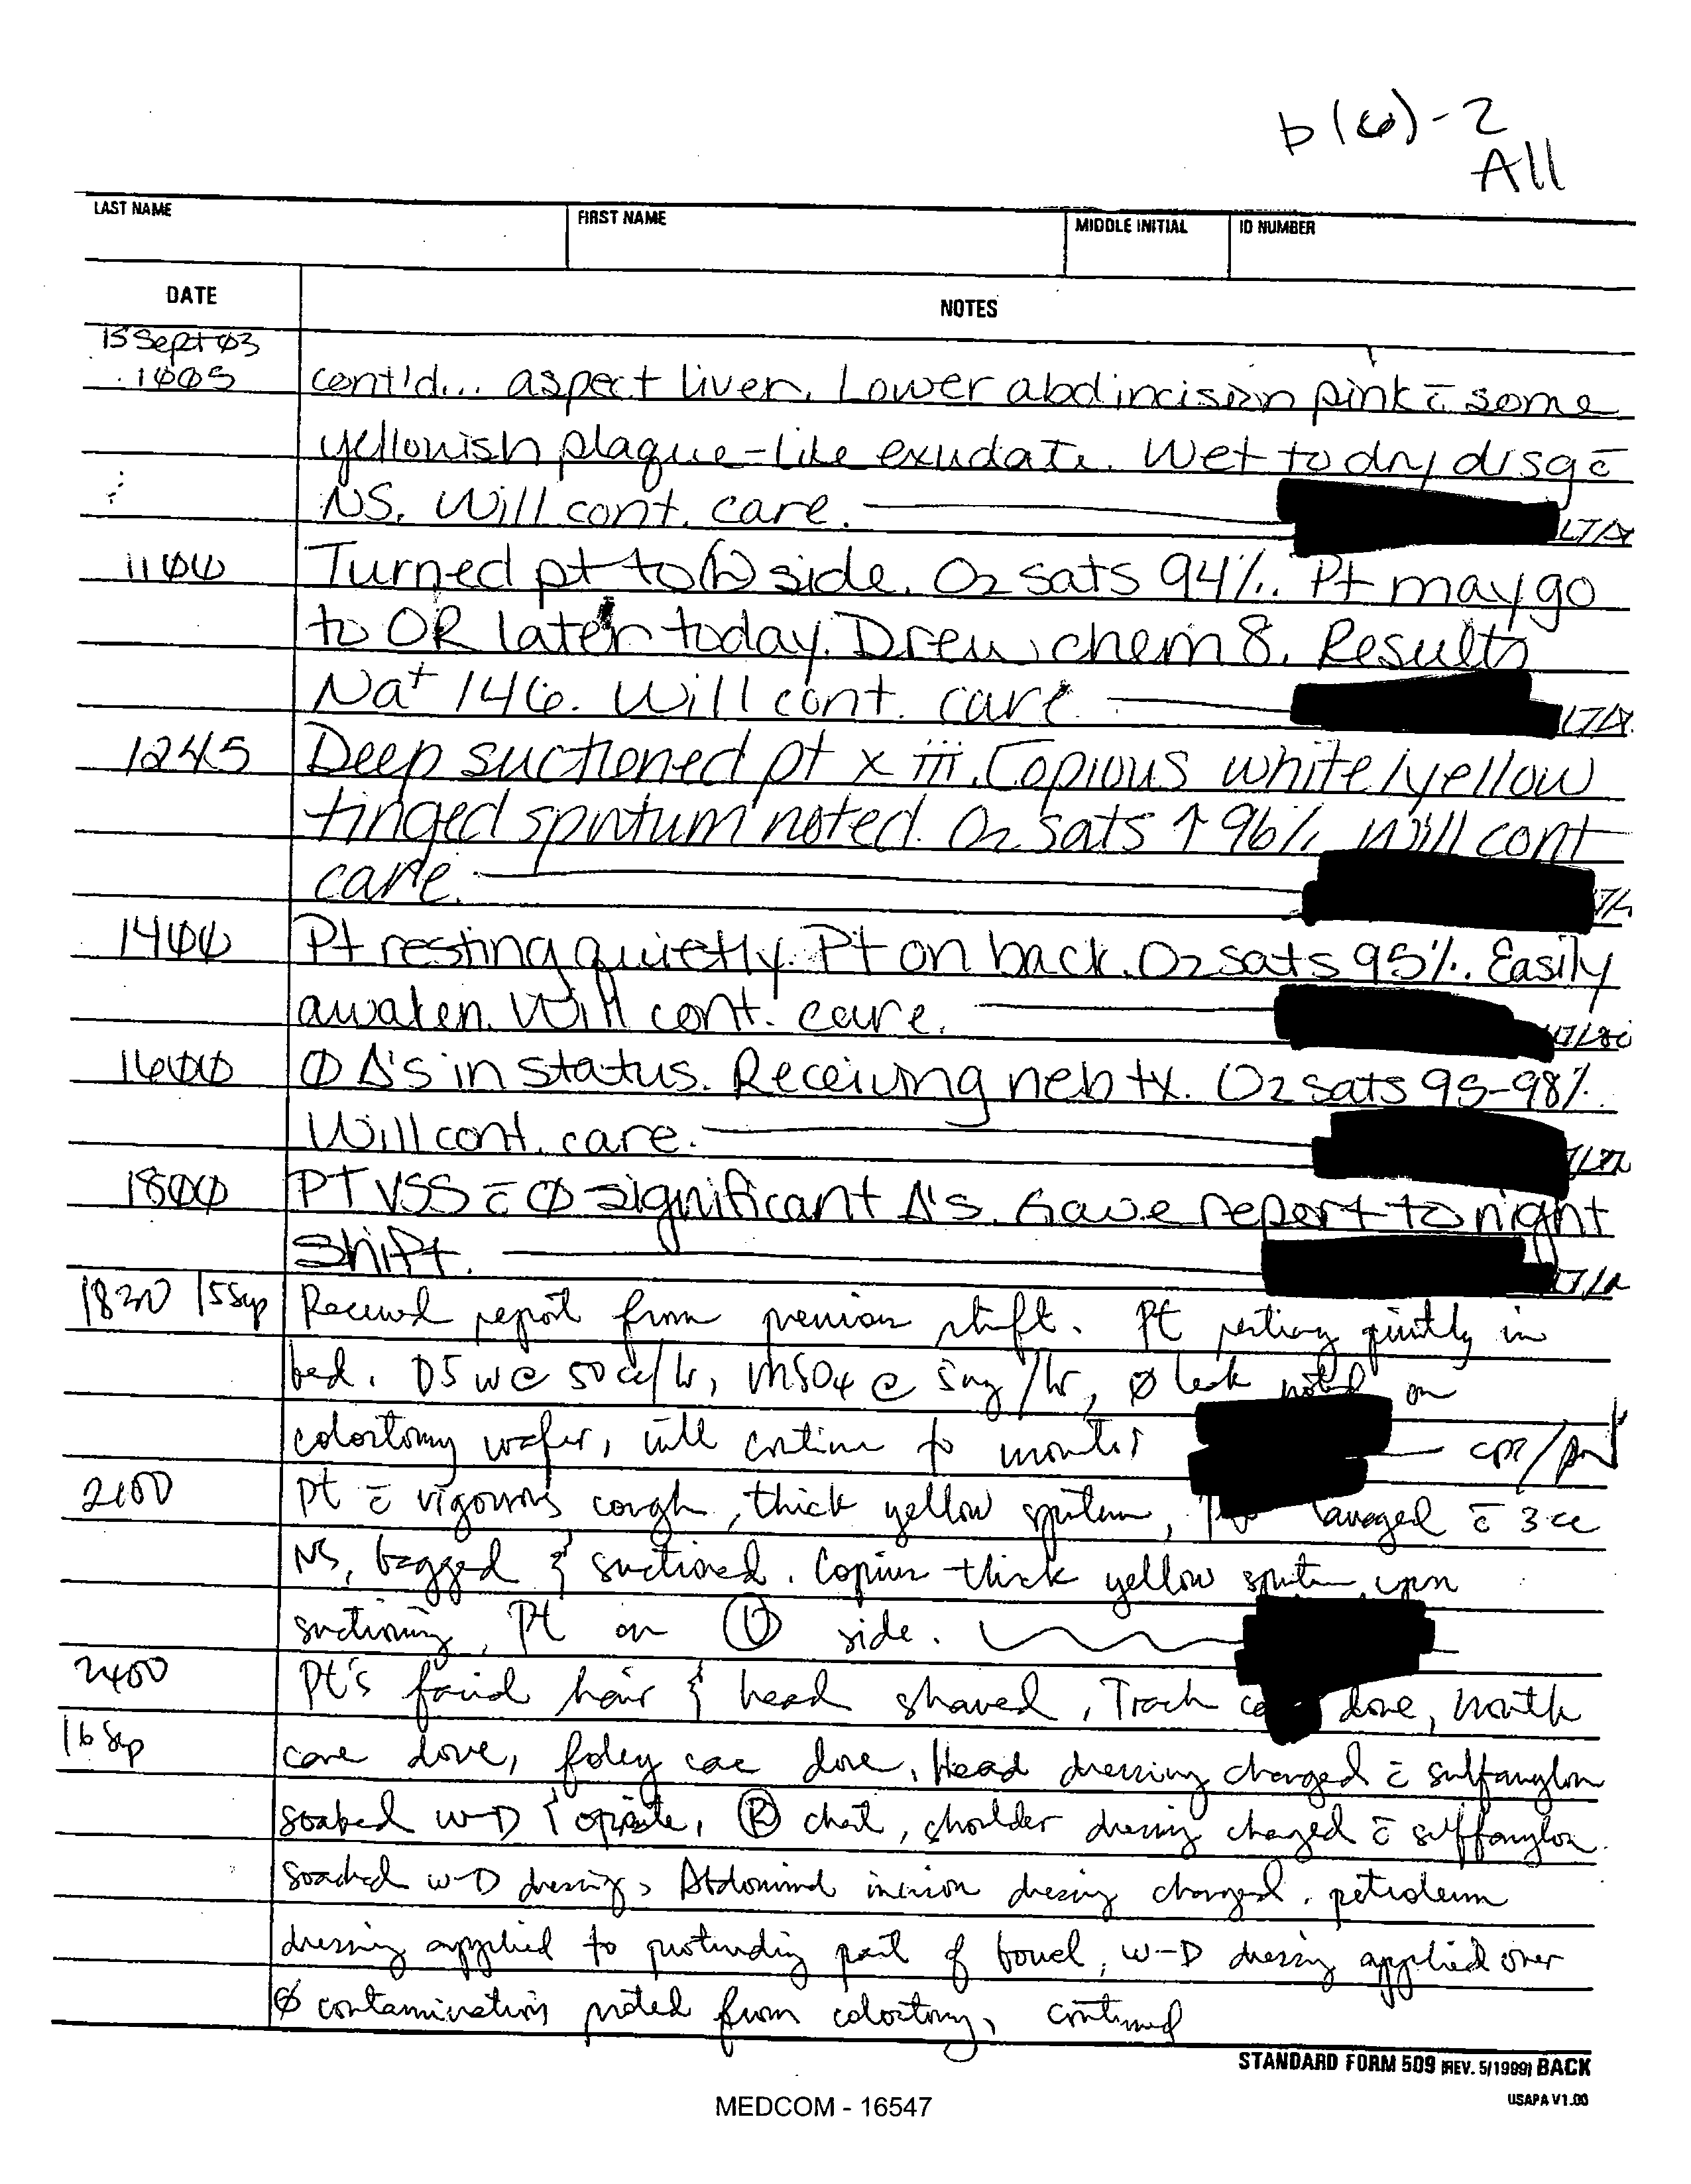 b(6)-2
All
LAST NAME FIRST NAME MIDDLE INITIAL ID NUMBER
DATE NOTES
15 Sept 03
1005 cont'd... aspect liver. Lower abd incision pink c̄ some
yellowish plaque-like exudate. Wet to dry drsg c̄
NS. Will cont. care.
1100 Turned pt to side. O2 sats 94%. Pt may go
to OR later today. Drew chem 8. Results
Na+ 146. Will cont. care
1245 Deep suctioned pt x iii. Copious white/yellow
tinged sputum noted. O2 sats ↑ 96%. Will cont
care.
1400 Pt resting quietly. Pt on back. O2 sats 95%. Easily
awaken. Will cont. care.
1600 Ø Δ's in status. Receiving neb tx. O2 sats 95-98%.
Will cont. care.
1800 PT VSS c̄ Ø significant Δ's. Gave report to night
shift.
1830 15 Sep Received report from previous shift. Pt resting quietly in
bed. D5W @ 50 cc/hr, MSO4 @ 5mg/hr, Ø leak noted on
colostomy wafer, will continue to monitor
2100 Pt c̄ vigorous cough, thick yellow sputum, lavaged c̄ 3 cc
NS, bagged & suctioned. Copious thick yellow sputum upon
suctioning, Pt on Ⓛ side.
2400 Pt's facial hair & head shaved, Trach done, mouth
16 Sep care done, foley care done. Head dressing changed c̄ sulfamylon
soaked W-D & opsite, Ⓡ chest, shoulder dressing changed c̄ sulfamylon
soaked W-D dressing, Abdominal incision dressing changed, petroleum
dressing applied to protruding part of bowel, W-D dressing applied over
Ø contamination noted from colostomy, continued
STANDARD FORM 509 (REV. 5/1999) BACK
USAPA V1.00
MEDCOM - 16547